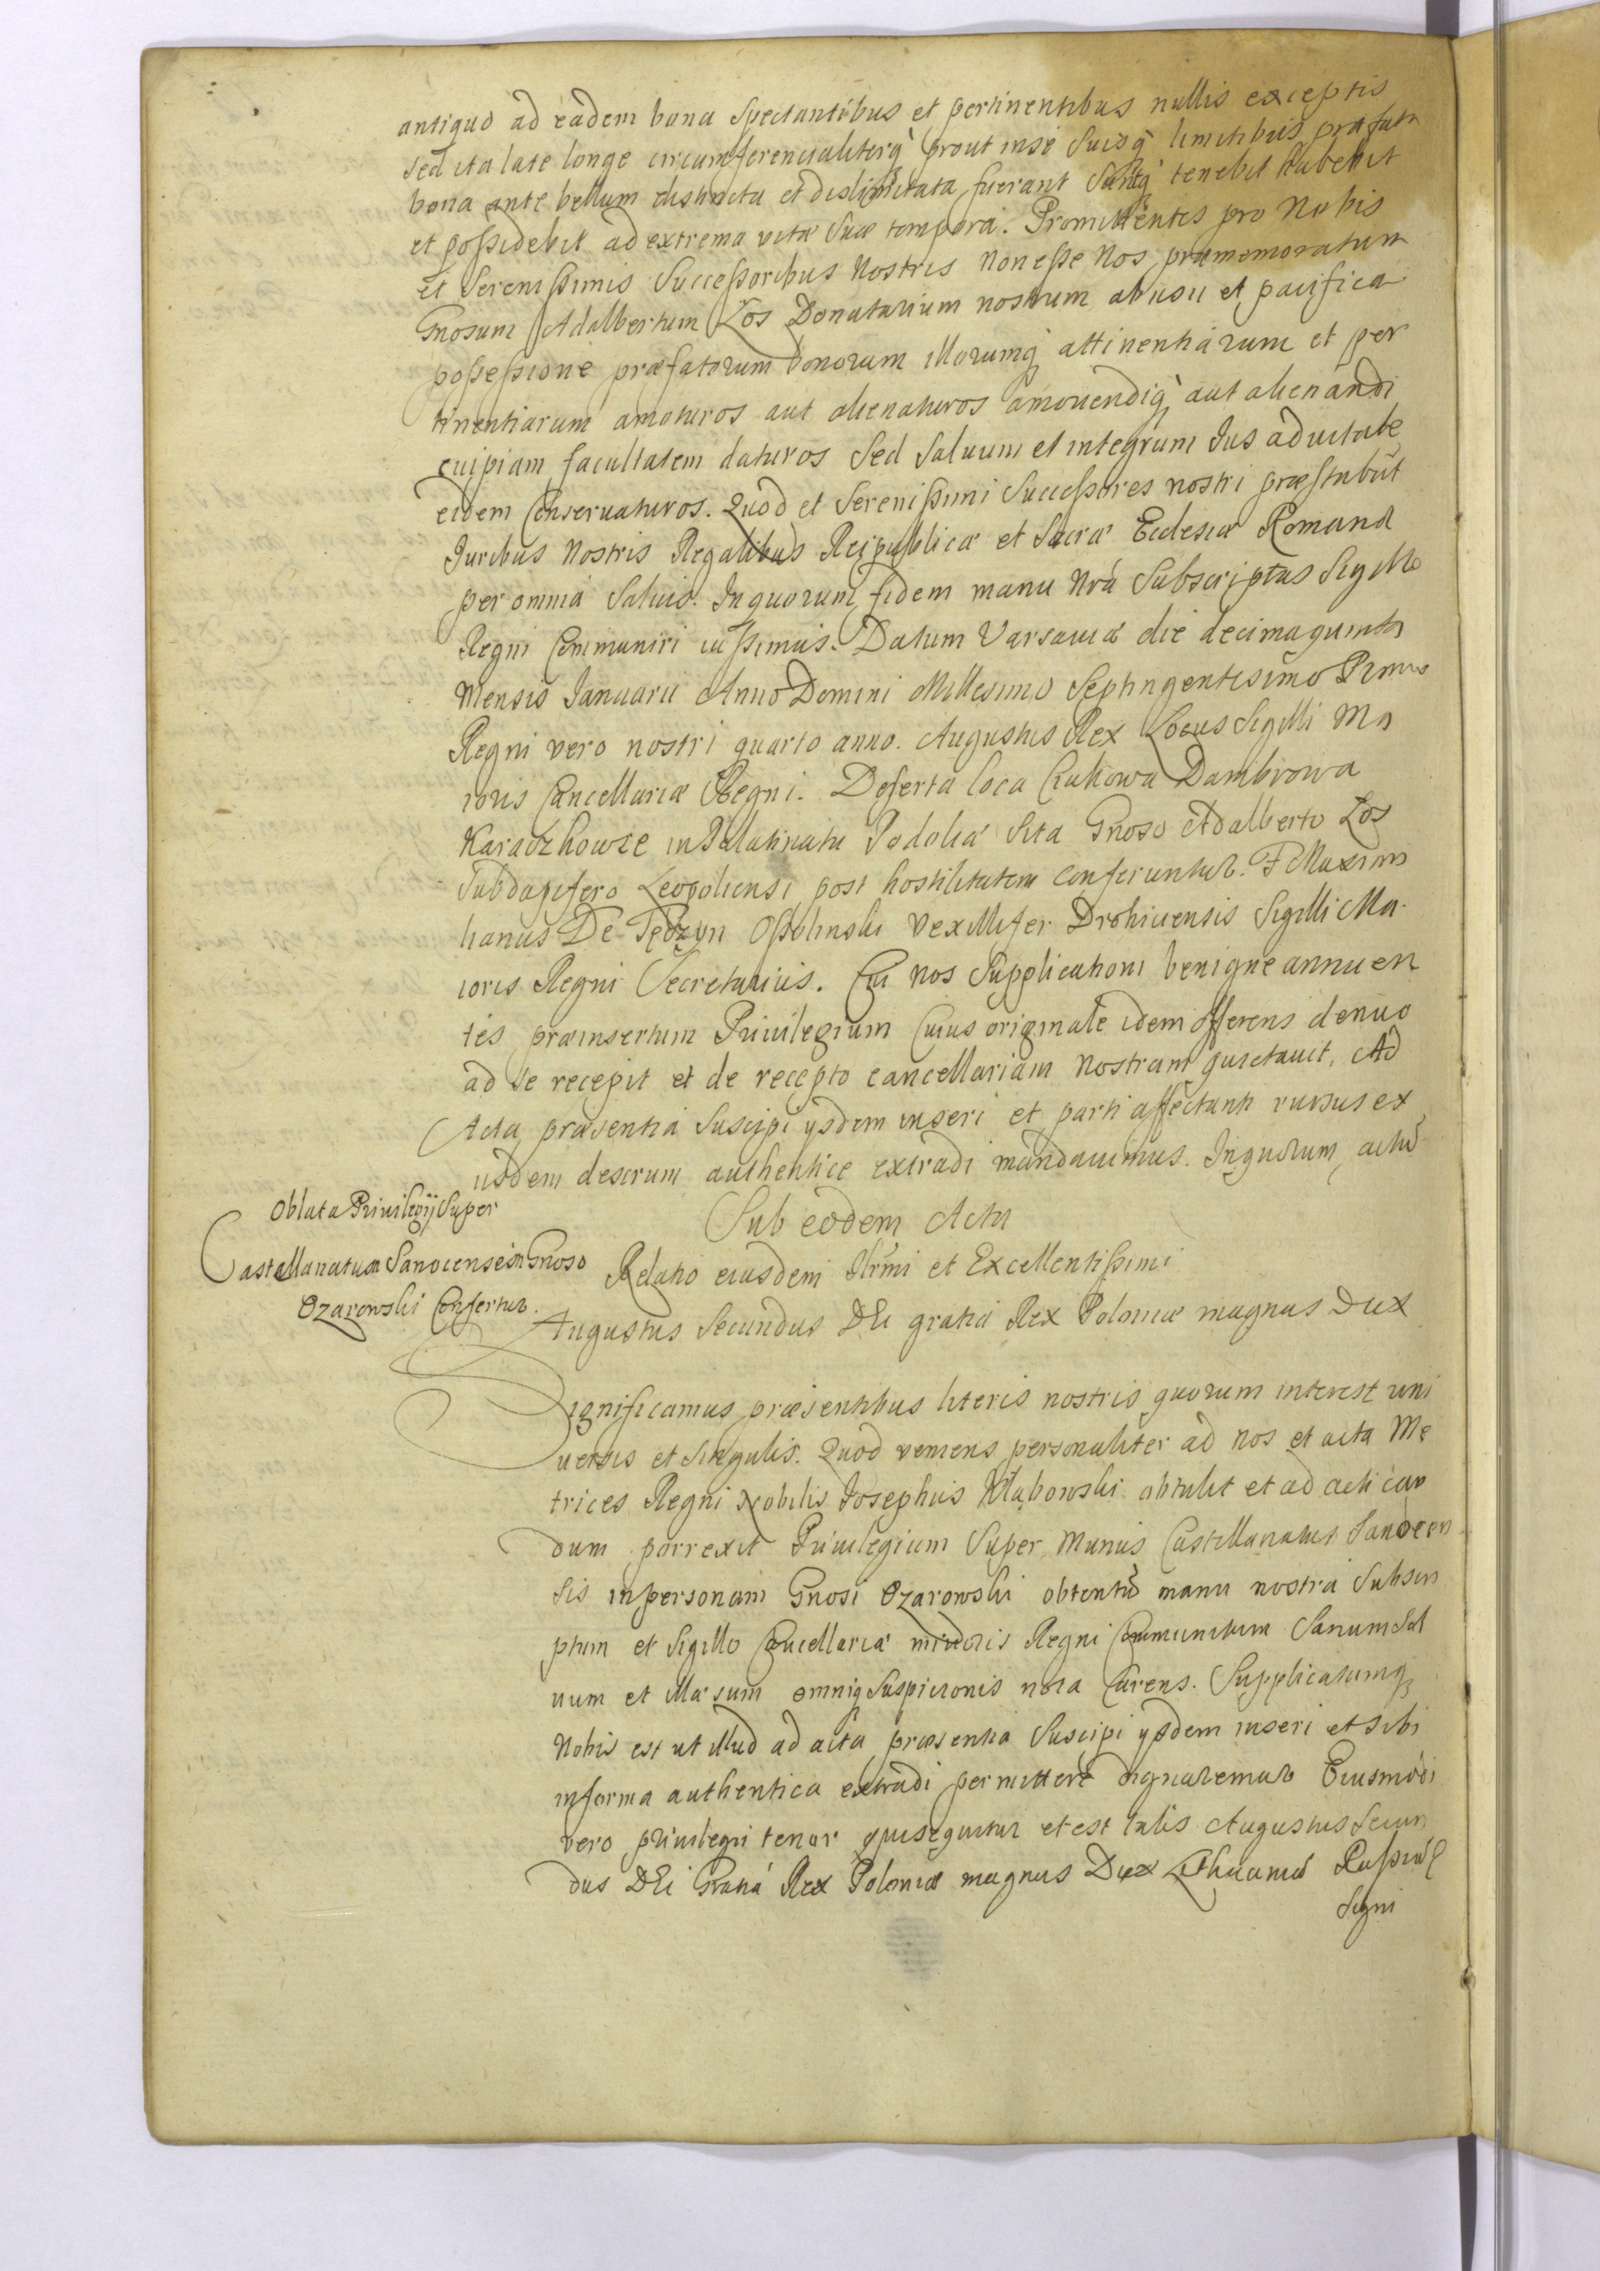 antiquo ad eadem bona spectantibus et pertinentibus nullis exceptis
sed ita late longe circumferencialiterq̀ prout in se suisq̀ limitibus præfata
bona ante bellum distincta et dislimitata fuerant tenebit habebit
et possidebit ad extrema vitæ suæ tempora. Promittentes pro Nobis
et Serenissimis Successoribus Nostris non esse Nos præmemoratum
Gnosum Adalbertum Łos Donatarium nostrum ab usu et pacifica
possessione præfatorum bonorum illorumq̀ attinentiarum et per
tinentiarum amoturos aut alienaturos amovendiq̀ aut alienandi
cuipiam facultatem daturos Sed Saluum et integrum Ius aduitale
eidem Conseruaturos. Quod et Serenissimi Successores nostri præstabūt
Iuribus Nostris Regalibus Reipublicæ et Sacræ Ecclesiæ Romanæ
per omnia Saluis. In quorum fidem manu Nrã Subscriptas Sigillo
Regni Communiri iussimus. Datum Varsauiæ die decimaquinta
Mensis Ianuarii Anno Domini Millesimo Septingentesimo Primo
Regni vero nostri quarto anno. Augustus Rex Locus Sigilli Ma
ioris Cancellariæ Regni. Deserta loca Czukowa Dambrowa
Karaczkowce in Palatinatu Podoliæ sita Gnoso Adalberto Łos
Subdapifero Leopoliensi post hostilitatem conferuntur. F Maximi
lianus De Tęczyn Ossolinski Vexillifer Drohicensis Sigilli Ma
ioris Regni Secretarius. Cui nos Supplicationi benigne annuen
tes præinsertum Priuilegium Cuius originale idem offerens denuo
ad se recepit et de recepto cancellariam Nostram quietauit, Ad
Acta præsentia Suscipi ysdem inseri et parti affectanti rursus ex
iisdem descrum authentice extradi mandauimus. In quorum, actū
Oblata Priuilegij Super
Castellanatum Sanocensem Gnoso
Ozarowski Confertur.
Sub eodem Actu
Relatio eiusdem Illrmi et Excellentissimi
Augustus Secundus DEi gratia Rex Poloniæ magnus Dux
Significamus præsentibus literis nostris quorum interest uni
uersis et singulis. Quod veniens personaliter ad nos et acta Me
trices Regni Nobilis Josephus obtulit et ad actican
dum porrexit Priuilegium Super Munus Castellanatus Sanocen
sis in personam Gnosi Ozarowski obtentū manu nostra Subscri
ptum et Sigillo Cancellariæ minoris Regni Communitum Sanum Sal
uum et illæsum omniq̀ Suspicionis nota Carens. Supplicatumq̀
Nobis est ut illud ad acta præsentia Suscipi ysdem inseri et sibi
in forma authentica extradi permittere dignaremur Eiusmodi
vero priuilegii tenor qui sequitur et est talis Augustus Secun
dus DEi Gratia Rex Poloniæ magnus Dux Lithuaniæ Russiæ
Signi